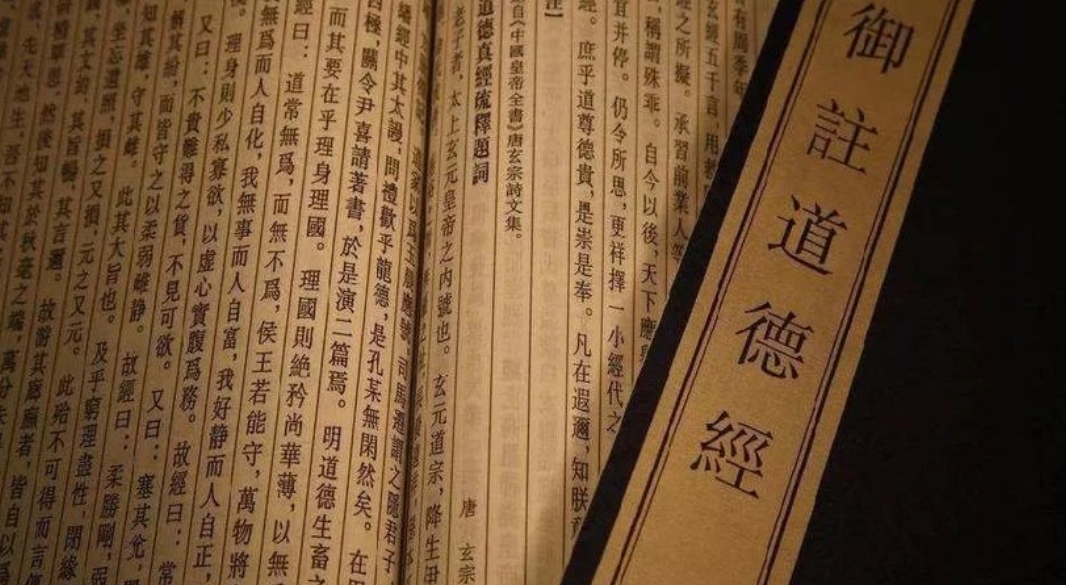 御註道德經
有周季年
玄經五千言，用救
經之所擬。承習前業人等
，稱謂殊乖。自今以後，天下應
宜并停。仍令所思，更祥擇一小經代之
經。庶乎道尊德貴，是崇是奉。凡在遐邇，知朕意
注】
自《中國皇帝全書》唐玄宗詩文集。
道德真經疏釋題詞
唐 玄宗
老子者，太上玄元皇帝之内號也。玄元道宗，降生
司馬遷謂之隱君子
繙經中其太謾，問禮歎乎龍德，是孔某無閑然矣。在
四極，關令尹喜請著書，於是演二篇焉。明道德生畜之
而其要在乎理身理國。理國則絶矜尚華薄，以無
經曰：道常無爲，而無不爲，侯王若能守，萬物將
無爲而人自化，我無事而人自富，我好静而人自正，
。理身則少私寡欲，以虚心實腹爲務。故經曰：常
又曰：不貴難得之貨，不見可欲。又曰：塞其兊，
解其紛，而皆守之以柔弱雌静。故經曰：柔勝剛，弱
知其雄，守其雌。此其大旨也。及乎窮理盡性，閉緣
坐忘遺照，損之又損，元之又元。此殆不可得而言
其文約，其旨暢，其言邇。故游其廊廡者，皆自以爲
精單思，然後知其於秋毫之端，萬分未
先天地生，吾不知其